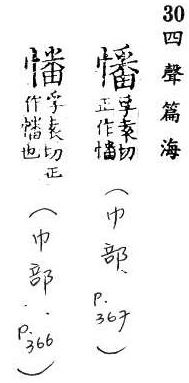 30 四聲篇海
幡 孚袁切
正作幡
(巾部. p.367)
孚袁切正
作幡也
(巾部. p.366)